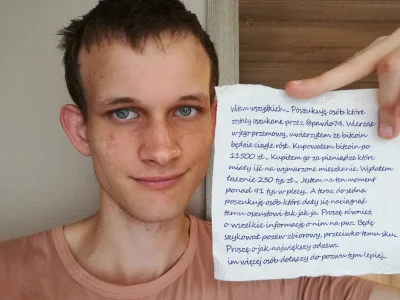 Witam wszystkich... Poszukuję osób które
zostały oszukane przez @pawlo74. Wierząc
w jego przemowy, uwierzyłem że bitcoin
będzie ciągle rósł. Kupowałem bitcoin po
11500 zł... Kupiłem go za pieniądze które
miały iść na wymarzone mieszkanie. Wydałem
łącznie 230 tyś zł... Jestem na ten moment
ponad 91 tyś w plecy... A teraz do sedna
poszukuję osób które dały się naciągnąć
temu oszustowi tak jak ja. Proszę również
o wszelkie informację o nim na pw. Będę
szykował pozew zbiorowy, przeciwko temu sku...
Proszę o jak największy odzew...
im więcej osób dołączy do pozwu tym lepiej...